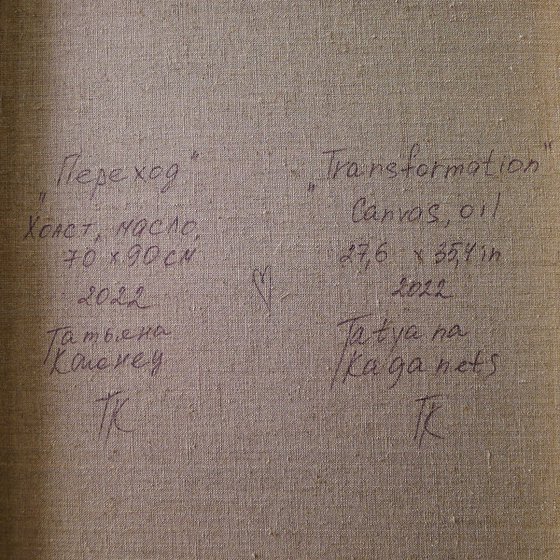 „Переход"
Холст, масло,
70 x 90 см
2022
Татьяна
Каганец
ТК
„Transformation"
Canvas, oil
27,6 x 35,4 in
2022
Tatyana
Kaganets
TK